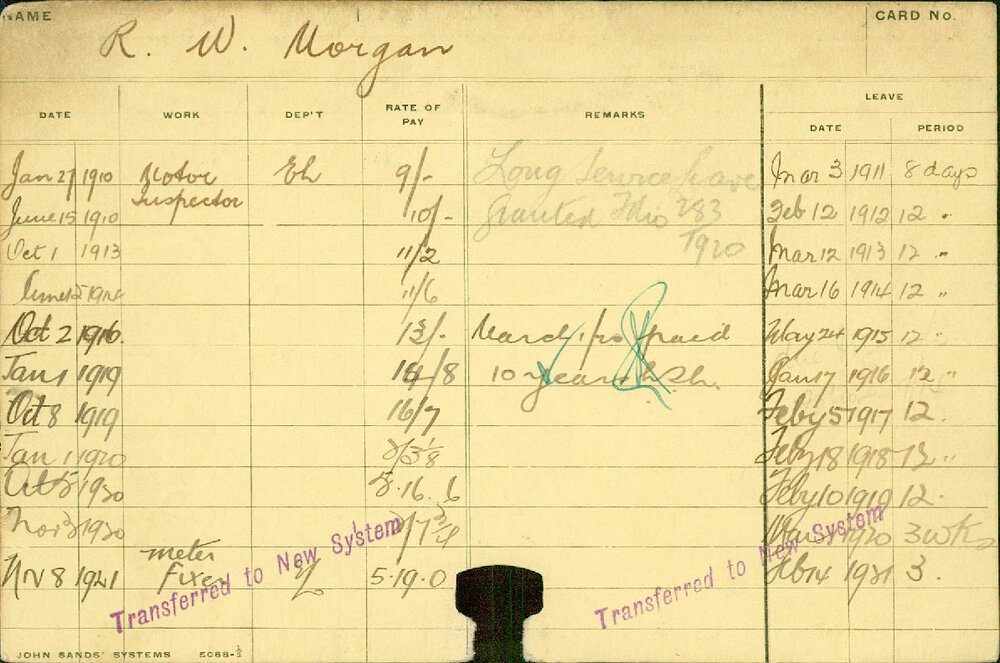 NAME
CARD No.
R. W. Morgan
DATE WORK DEP'T RATE OF PAY REMARKS LEAVE
DATE PERIOD
Jan 27 1910 Motor Eh 9/- Long Service Leave Mar 3 1911 8 days
June 15 1910 Inspector 10/- Granted 283 Feb 12 1912 12 "
Oct 1 1913 11/2 1920 Mar 12 1913 12 "
1914 11/6 Mar 16 1914 12 "
Oct 2 1916 13/- March 1/20 paid May 24 1915 12 "
Jan 1 1919 14/8 10 years Jan 17 1916 12 "
Oct 8 1919 16/7 Feby 5 1917 12 "
Jan 1 1920 Feby 18 1918 12 "
Oct 1920 5.16.6 Feby 10 1919 12 "
Nov 3 1920 Mar 1920 3 wks
Nov 8 1921 meter fixer 5.19.0 Feb 14 1921 3 "
Transferred to New System
Transferred to New System
JOHN SANDS' SYSTEMS 5068-½